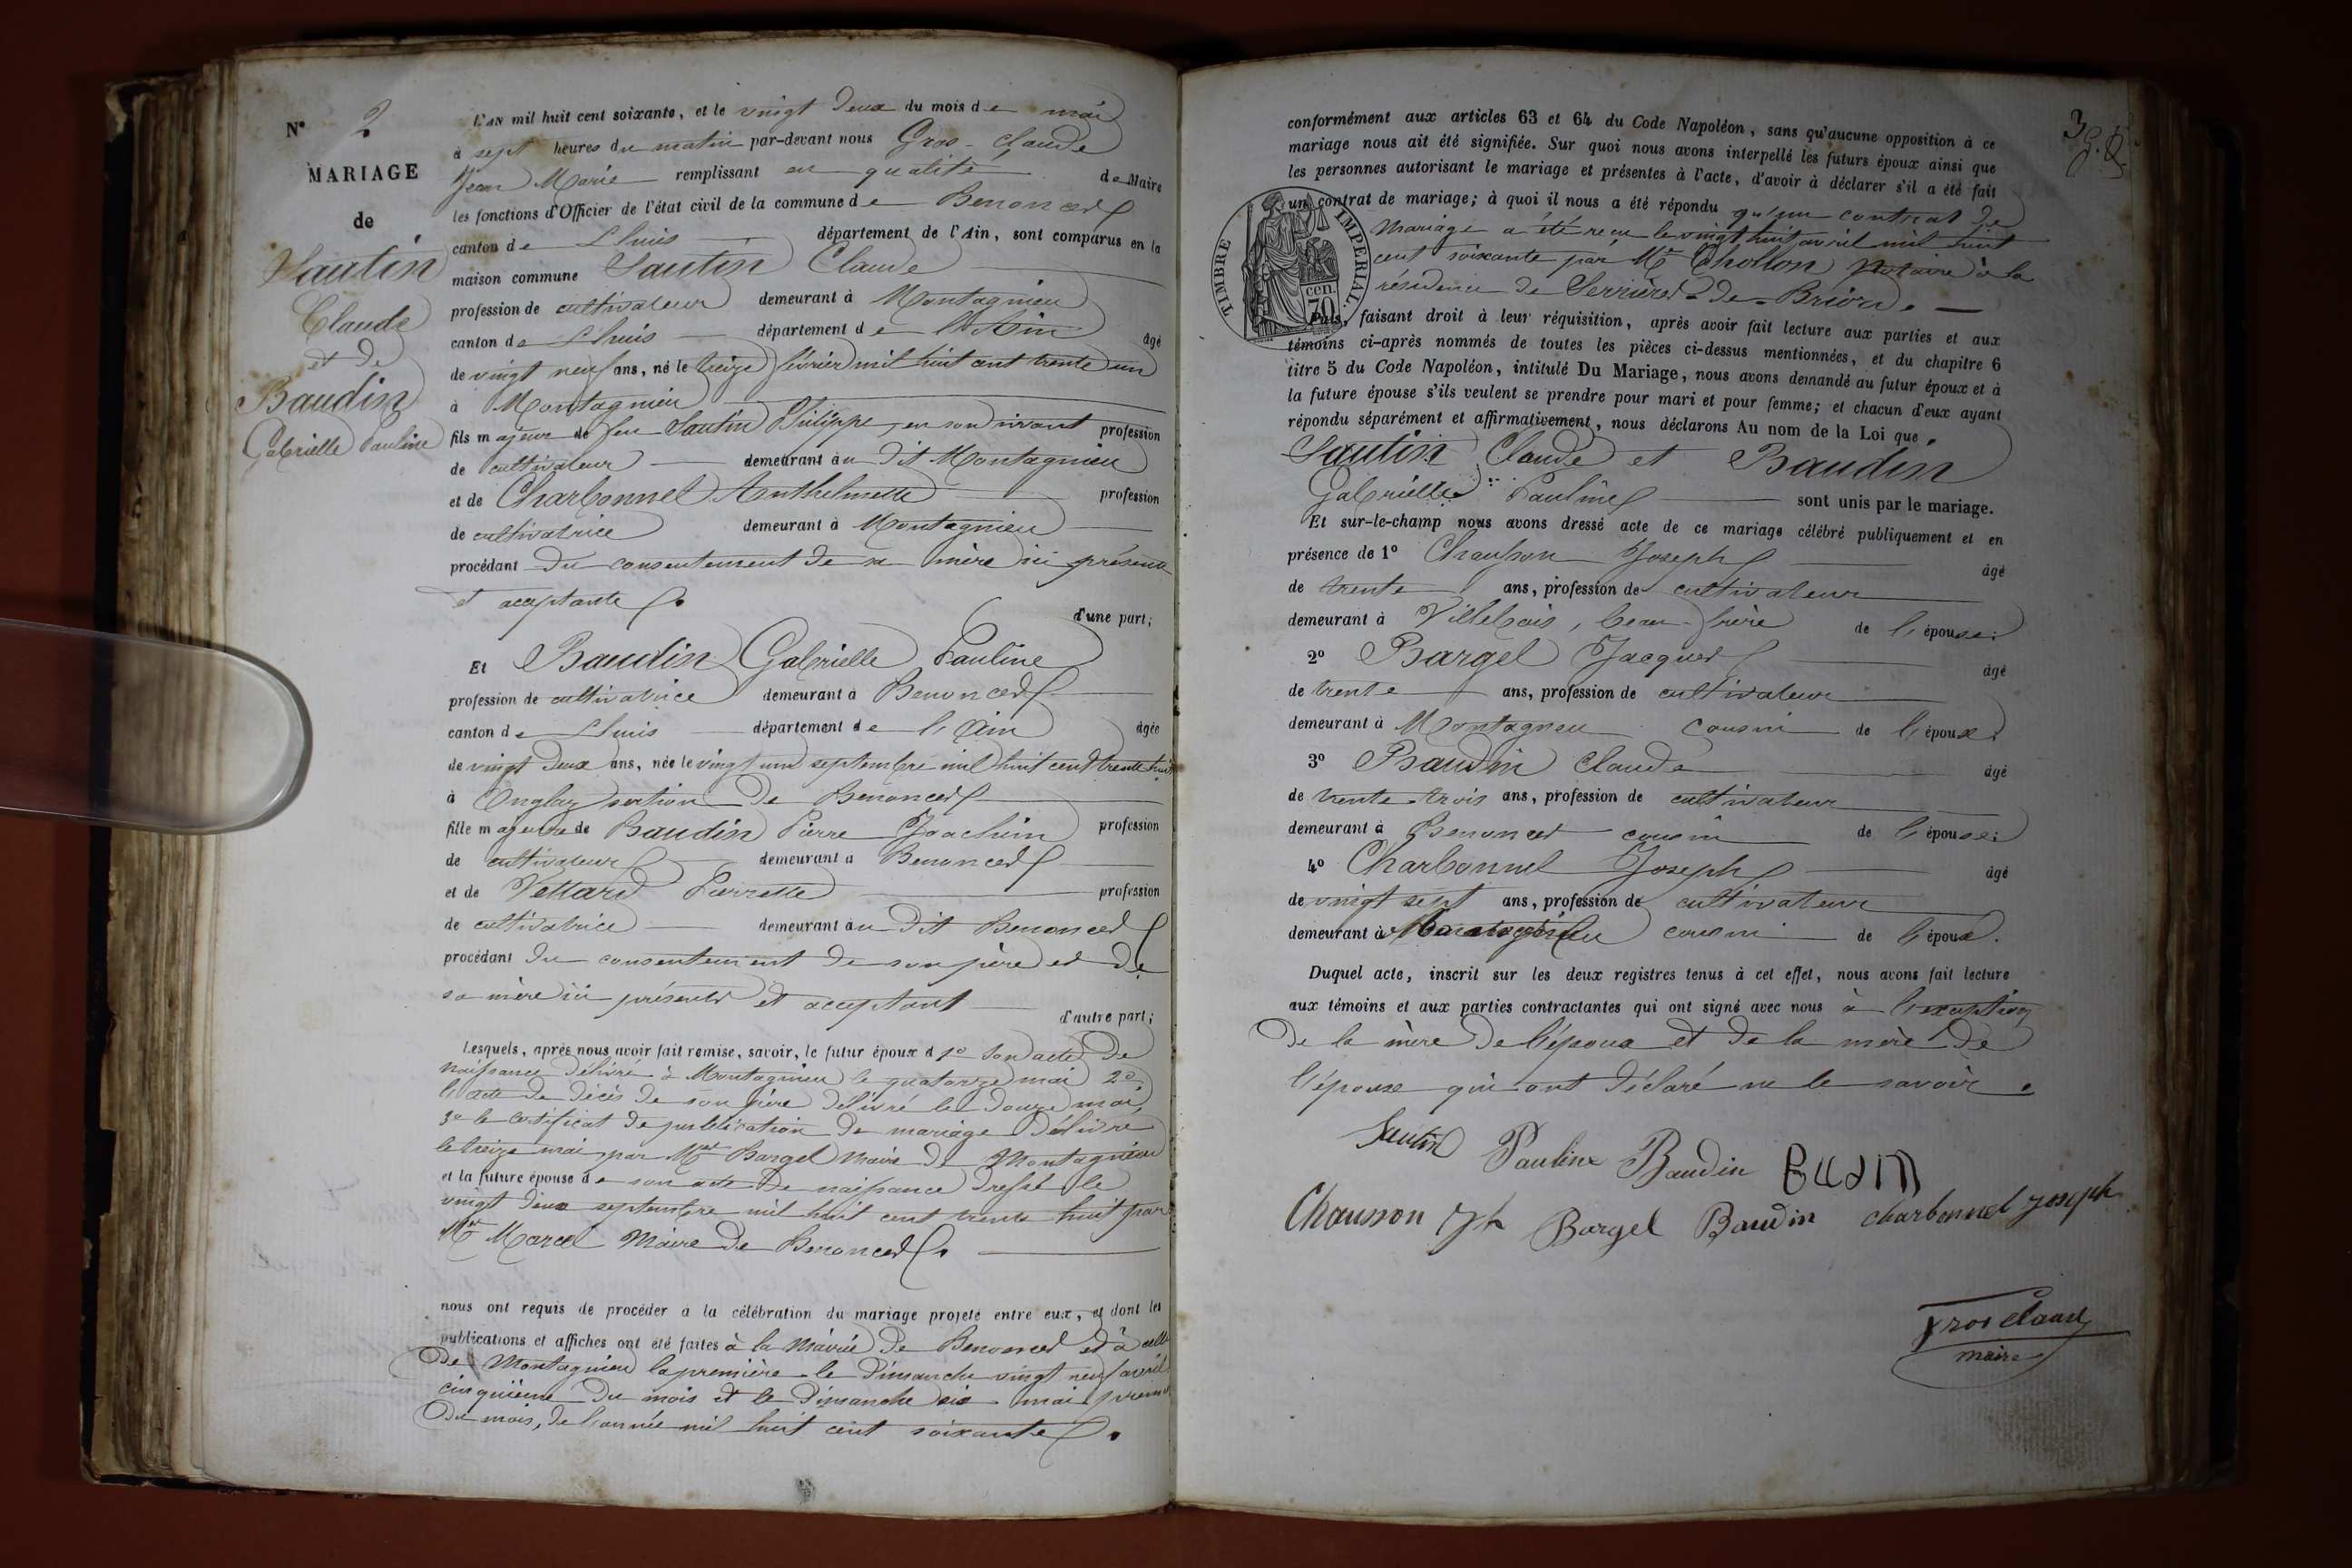 N° 2
MARIAGE
de
Sautin
Claude
et de
Baudin
Gabrielle Pauline
L'AN mil huit cent soixante, et le vingt deux du mois de mai
à sept heures du matin par-devant nous Gros-Claude
Jean Marie remplissant en qualité de Maire
les fonctions d'Officier de l'état civil de la commune de Benonces
canton de Lhuis département de l'Ain, sont comparus en la
maison commune Sautin Claude
profession de cultivateur demeurant à Montagnieu
canton de Lhuis département de l'Ain âgé
de vingt neuf ans, né le treize février mil huit cent trente un
à Montagnieu
fils majeur de feu Sautin Philippe, en son vivant profession
de cultivateur demeurant au dit Montagnieu
et de Charbonnel Anthelmette profession
de cultivatrice demeurant à Montagnieu
procédant du consentement de sa mère ici présente
et acceptante
d'une part;
Et Baudin Gabrielle Pauline
profession de cultivatrice demeurant à Benonces
canton de Lhuis département de l'Ain âgée
de vingt deux ans, née le vingt un septembre mil huit cent trente huit
à Onglaz section de Benonces
fille majeure de Baudin Pierre Joachim profession
de cultivateur demeurant à Benonces
et de Vettard Pierrette profession
de cultivatrice demeurant au dit Benonces
procédant du consentement de son père et de
sa mère ici présents et acceptant
d'autre part;
Lesquels, après nous avoir fait remise, savoir, le futur époux d 1° son acte de
naissance délivré à Montagnieu le quatorze mai 2°
l'acte de décès de son père délivré le douze mai
3° le certificat de publication de mariage délivré
le treize mai par Mr Bargel Maire de Montagnieu
et la future épouse de son acte de naissance dressé le
vingt deux septembre mil huit cent trente huit par
Mr Marcel Maire de Benonces.
nous ont requis de procéder à la célébration du mariage projeté entre eux, et dont les
publications et affiches ont été faites à la Mairie de Benonces et à celle
de Montagnieu la première le dimanche vingt neuf avril
cinquième du mois et le dimanche six mai premier
du mois, de l'année mil huit cent soixante.
3
conformément aux articles 63 et 64 du Code Napoléon, sans qu'aucune opposition à ce
mariage nous ait été signifiée. Sur quoi nous avons interpellé les futurs époux ainsi que
les personnes autorisant le mariage et présentes à l'acte, d'avoir à déclarer s'il a été fait
un contrat de mariage; à quoi il nous a été répondu qu'un contrat de
mariage a été reçu le vingt huit avril mil huit
cent soixante par Mr Chollon Notaire à la
résidence de Serrières-de-Briord.
TIMBRE IMPERIAL.
70 cen.
Puis, faisant droit à leur réquisition, après avoir fait lecture aux parties et aux
témoins ci-après nommés de toutes les pièces ci-dessus mentionnées, et du chapitre 6
titre 5 du Code Napoléon, intitulé Du Mariage, nous avons demandé au futur époux et à
la future épouse s'ils veulent se prendre pour mari et pour femme; et chacun d'eux ayant
répondu séparément et affirmativement, nous déclarons Au nom de la Loi que,
Sautin Claude et Baudin
Gabrielle Pauline sont unis par le mariage.
Et sur-le-champ nous avons dressé acte de ce mariage célébré publiquement et en
présence de 1° Chausson Joseph âgé
de trente ans, profession de cultivateur
demeurant à Villebois, beau-frère de l'épouse;
2° Bargel Jacques âgé
de trente ans, profession de cultivateur
demeurant à Montagneu cousin de l'époux;
3° Baudin Claude âgé
de trente-trois ans, profession de cultivateur
demeurant à Benonces cousin de l'épouse;
4° Charbonnel Joseph âgé
de vingt sept ans, profession de cultivateur
demeurant à Montagnieu cousin de l'époux.
Duquel acte, inscrit sur les deux registres tenus à cet effet, nous avons fait lecture
aux témoins et aux parties contractantes qui ont signé avec nous à l'exception
de la mère de l'époux et de la mère de
l'épouse qui ont déclaré ne le savoir.
Sautin Pauline Baudin Budin
Chausson Jh Bargel Baudin charbonnel joseph
gros claude
maire